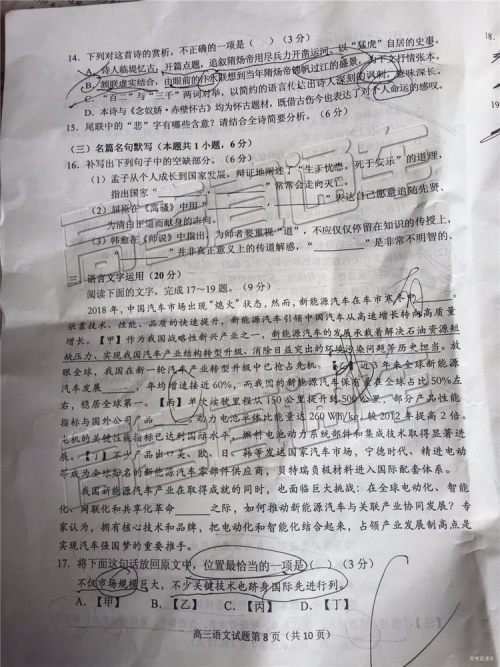 14. 下列对这首诗的赏析，不正确的一项是（ ）（3分）
A. 诗人临堤忆古，开篇点题，追叙隋炀帝用尽兵力开凿运河，以“猛虎”自居的史事。
B. 颔联虚实结合，由眼前的汴水联想到当年隋炀帝锦帆过江的盛景，为下文抒情张本。
C. “百二”与“三千”两词对举，以简约的语言传达出诗人深刻的讽刺，意味深长。
D. 本诗与《念奴娇·赤壁怀古》均为怀古题材，既借古伤今也表达了对个人命运的感叹。
15. 尾联中的“悲”字有哪些含意？请结合全诗简要分析。（6分）
（三）名篇名句默写（本题共1小题，6分）
16. 补写出下列句子中的空缺部分。（6分）
（1）孟子从个人成长到国家发展，辩证地阐述了“生于忧患，死于安乐”的道理，
指出国家“ ”常常会走向灭亡。
（2）屈原在《离骚》中用“ ， ”表达自己愿意追随先贤、
为清白正道而献身的志向。
（3）韩愈在《师说》中指出，为师者要重视“道”，不应仅仅停留在知识的传授上，
“ ”并非真正意义上的传道解惑，“ ”是非常不明智的。
三、语言文字运用（20分）
阅读下面的文字，完成17～19题。（9分）
2018年，中国汽车市场出现“熄火”状态，然而，新能源汽车在车市寒冬中 。
依靠技术、性能、品质的快速提升，新能源汽车引领中国汽车从高速增长转向高质量
增长。【甲】作为我国战略性新兴产业之一，新能源汽车的发展承载着解决石油资源短
缺压力、实现我国汽车产业结构转型升级、消除日益突出的环境污染问题等历史担当。放
眼全球，我国在新一轮汽车产业转型升级中已抢占先机。 近3年来全球新能源
汽车发展 ，年均增速接近60%，而我国的新能源汽车保有量在全球占比50%左
右，稳居全球第一。【丙】单次续驶里程从150公里提升到500公里，部分产品性能
指标与国外公司产品 。动力电池单体比能量达260 Wh/kg，较2012年提高2倍。
电机的关键性能指标已达到国际水平，燃料电池动力系统部件和集成技术取得显著进
展。【丁】不少产品出口美、欧、日、韩等发达国家汽车市场，宁德时代、精进电动
等成为全球知名的新能源汽车零部件供应商，贝特瑞负极材料进入国际配套体系。
我国新能源汽车产业在取得成就的同时，也面临巨大挑战：在全球电动化、智能
化、网联化和共享化革命 之际，如何推动新能源汽车与关联产业协同发展？专
家认为，拥有核心技术和品牌，把电动化和智能化结合起来，占领产业发展制高点是
实现汽车强国梦的重要推手。
17. 将下面这句话放回原文中，位置最恰当的一项是（ ）（3分）
不仅市场规模巨大，不少关键技术也跻身国际先进行列。
A.【甲】 B.【乙】 C.【丙】 D.【丁】
高三语文试题第8页（共10页）
18.